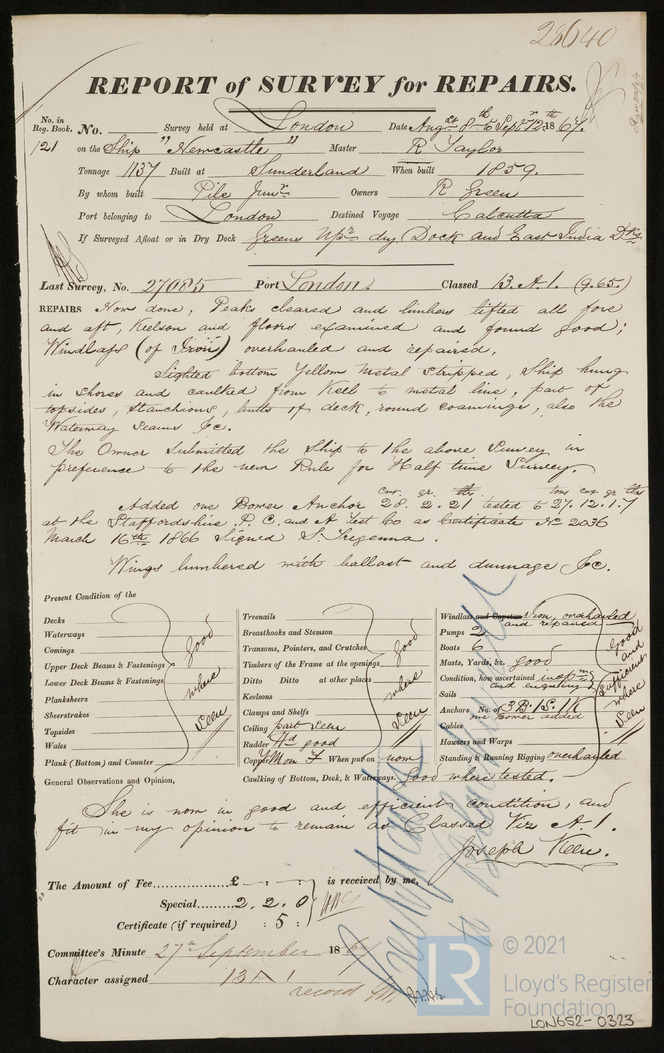 28640
REPORT of SURVEY for REPAIRS.
No. in Reg. Book. No. Survey held at London Date Augst 8th to Sepr 12th 1867.
121 on the Ship "Newcastle" Master R Taylor
Tonnage 1137 Built at Sunderland When built 1859.
By whom built Pile Junr Owners R Green
Port belonging to London Destined Voyage Calcutta
If Surveyed Afloat or in Dry Dock Greens Upr dry Dock and East India Dks
Last Survey, No. 27085 Port London. Classed 13. A. 1. (9.65.)
REPAIRS Now done, Peaks cleared and limbers lifted all fore
and aft, Keelson and floors examined and found good;
Windlass (of Iron) overhauled and repaired,
Sighted bottom Yellow Metal stripped, Ship hung
in shores and caulked from Keel to metal line, part of
topsides, Stanchions, butts of deck, round coamings, also the
Waterway Seams &c.
The Owner submitted the Ship to the above Survey in
preference to the new Rule for Half time Survey.
Cwt. qr. lbs. tons cwt qr lbs
Added one Bower Anchor 28. 2. 21 tested to 27. 12. 1. 7
at the Staffordshire P. C. and A Test Co as Certificate No 2036
March 16th 1866 Signed S. Tregenna.
Wings lumbered with ballast and dunnage &c.
Present Condition of the
Decks
Waterways
Comings
Upper Deck Beams & Fastenings
Lower Deck Beams & Fastenings
Planksheers
Sheerstrakes
Topsides
Wales
Plank (Bottom) and Counter
good where seen
Treenails
Breasthooks and Stemson
Transoms, Pointers, and Crutches
Timbers of the Frame at the openings
Ditto Ditto at other places
Keelsons
Clamps and Shelfs
Ceiling part seen
Rudder good
Copper Y Mon F When put on now
good where seen
Windlass and Capstan Iron, overhauled and repaired
Pumps 2
Boats 6
Masts, Yards, &c. good
Condition, how ascertained inspn and enquiry
Sails
Anchors No. of 3 B. 1 S. 1 K
one Bower added
Cables
Hawsers and Warps
Standing & Running Rigging overhauled
Good and sufficient where seen
General Observations and Opinion, Caulking of Bottom, Deck, & Waterways. Good where tested.
She is now in good and efficient condition, and
fit in my opinion to remain as Classed Viz A 1.
Joseph Keen.
The Amount of Fee £ is received by me,
Special 2. 2. 0
Certificate (if required) : 5 :
Committee's Minute 27th September 1867
Character assigned 13 A 1
record
© 2021
LR
Lloyd's Register
Foundation
LON652-0323